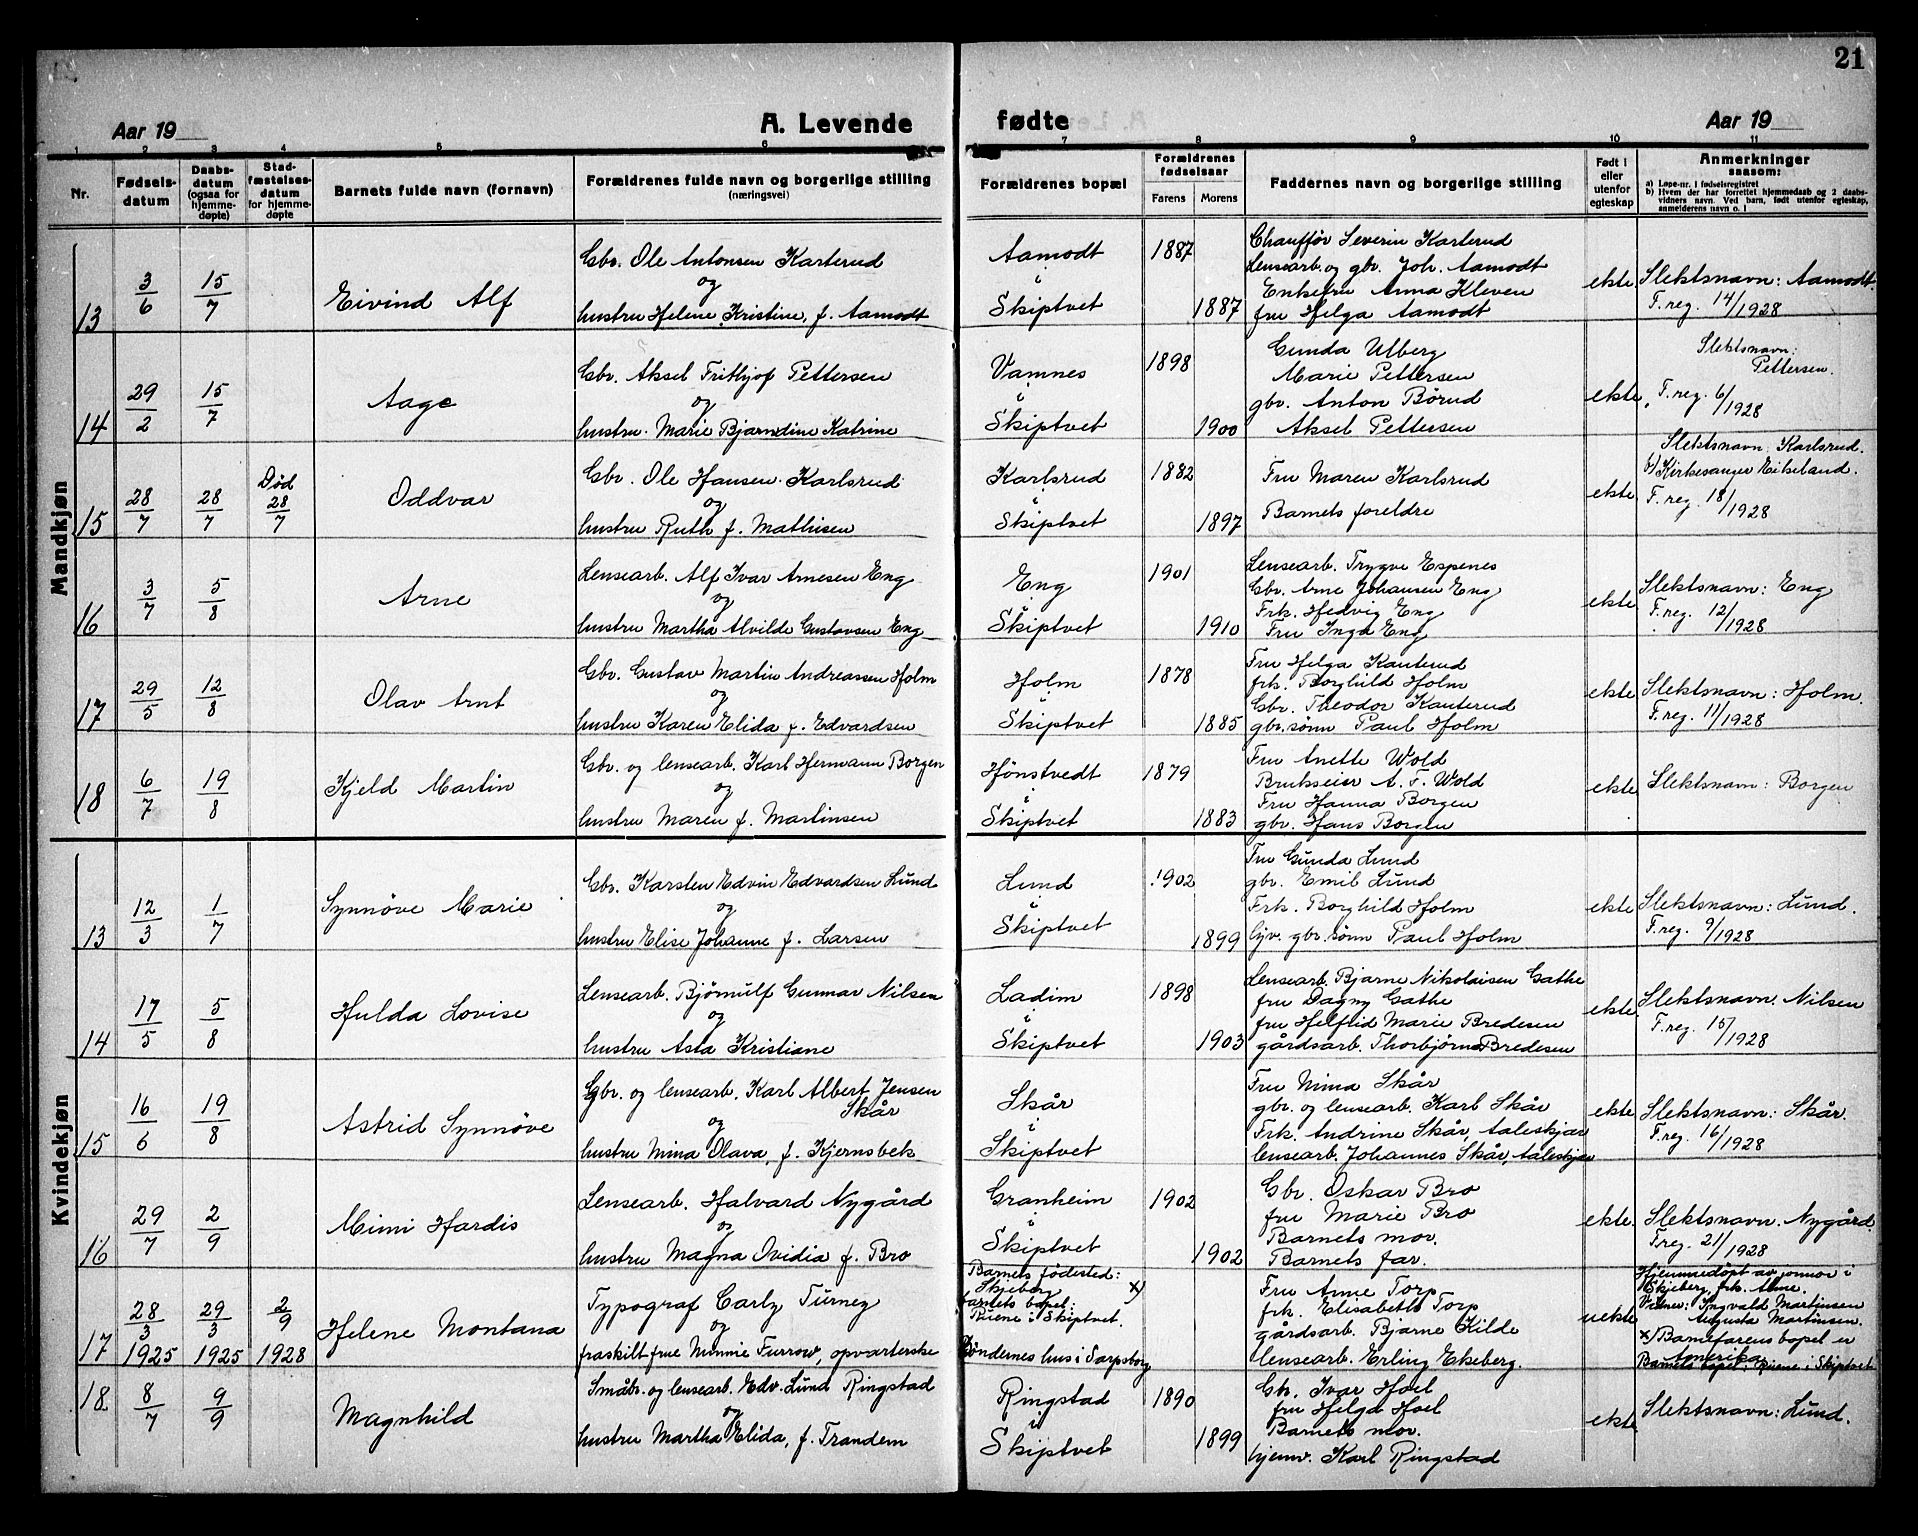 21
Aar 19
A. Levende
fødte
Aar 19
1 2 3 4 5 6 7 8 9 10 11
Nr.
Fødsels-
datum
Daabs-
datum
(ogsaa for
hjemme-
døpte)
Stad-
fæstelses-
datum
for hjemme-
døpte
Barnets fulde navn (fornavn)
Forældrenes fulde navn og borgerlige stilling
(næringsvei)
Forældrenes bopæl
Forældrenes
fødselsaar
Farens Morens
Faddernes navn og borgerlige stilling
Født i
eller
utenfor
egteskap
Anmerkninger
saasom:
a) Løpe-nr. i fødselsregistret
b) Hvem der har forrettet hjemmedaab og 2 daabs-
vidners navn. Ved barn, født utenfor egteskap,
anmelderens navn o. l
Mandkjøn
13 3/6 15/7 Eivind Alf
Gbr. Ole Antonsen Karterud
og
hustru Helene Kristine, f. Aamodt
Aamodt
i
Skiptvet
1887
1887
Chauffør Severin Karterud
Lensearb. og gbr. Joh. Aamodt
Enkefru Anna Kleven
fru Helga Aamodt
ekte
Slektsnavn: Aamodt.
F. reg. 14/1928
14 29/2 15/7 Aage
Gbr. Aksel Frithjof Pettersen
og
hustru Marie Bjarndine Katrine
Vamnes
i
Skiptvet
1898
1900
Gunda Ulberg
Marie Pettersen
gbr. Anton Børud
Aksel Pettersen
ekte
Slektsnavn:
Pettersen.
F. reg. 6/1928
15 28/7 28/7 Død 28/7 Oddvar
Gbr. Ole Hansen Karlsrud
og
hustru Ruth f. Mathisen
Karlsrud
i
Skiptvet
1882
1897
Fru Maren Karlsrud
Barnets foreldre
ekte
Slektsnavn: Karlsrud.
b) Kirkesanger Eikeland.
F. reg. 18/1928
16 3/7 5/8 Arne
Lensearb. Alf Ivar Arnesen Eng
og
hustru Martha Alvilde Gustavsen Eng
Eng
i
Skiptvet
1901
1910
Lensearb. Trygve Espenes
Gbr. Arne Johansen Eng
Frk. Hedvig Eng
Fru Inga Eng
ekte
Slektsnavn: Eng
F. reg. 12/1928
17 29/5 12/8 Olav Arnt
Gbr. Gustav Martin Andreassen Holm
og
hustru Karen Elida f. Edvardsen
Holm
i
Skiptvet
1878
1885
Fru Helga Kauterud
frk. Borghild Holm
Gbr. Theodor Kauterud
gbr.sønn Paul Holm
ekte
Slektsnavn: Holm.
F. reg. 11/1928
18 6/7 19/8 Kjeld Martin
Gbr. og lensearb. Karl Hermann Borgen
og
hustru Maren f. Martinsen
Hønstvedt
i
Skiptvet
1879
1883
Fru Anette Wold
Brukseier A. F. Wold
Fru Hanna Borgen
gbr. Hans Borgen
ekte
Slektsnavn: Borgen
Kvindekjøn
13 12/3 1/7 Synnøve Marie
Gbr. Karsten Edvin Edvardsen Lund
og
hustru Elise Johanne f. Larsen
Lund
i
Skiptvet
1902
1899
Fru Gunda Lund
gbr. Emil Lund
Frk. Borghild Holm
hjv. gbr.sønn Paul Holm
ekte
Slektsnavn: Lund.
F. reg. 9/1928
14 17/5 5/8 Hulda Lovise
Lensearb. Bjørnulf Gunnar Nilsen
og
hustru Asta Kristiane
Ladim
i
Skiptvet
1898
1903
Lensearb. Bjarne Nikolaisen Gathe
fru Dagny Gathe
fru Helflid Marie Bredesen
gårdsarb. Thorbjørn Bredesen
ekte
Slektsnavn. Nilsen
F. reg. 15/1928
15 16/6 19/8 Astrid Synnøve
Gbr. og lensearb. Karl Albert Jensen
Skår
og
hustru Mina Olava, f. Kjernsbek
Skår
i
Skiptvet
Fru Mina Skår
gbr. og lensearb. Karl Skår
Frk. Andrine Skår, Aaleskjær
lensearb. Johannes Skår, Aaleskjær
ekte
Slektsnavn: Skår.
F. reg. 16/1928
16 29/7 2/9 Mimi Hardis
Lensearb. Halvard Nygård
og
hustru Magna Ovidia f. Bro
Granheim
i
Skiptvet
1902
1902
Gbr. Oskar Bro
fru Marie Bro
Barnets mor.
Barnets far.
ekte.
Slektsnavn. Nygård
F. reg. 21/1928
17 28/3 1925 29/3 1925 2/9 1928 Helene Montana
Typograf Carly Turney
og
fraskilt frue Minnie Furrow, opvarterske
Barnets fødested:
Skjeberg x)
Barnets bopel:
Ruene i Skiptvet.
Bøndernes hus i Sarpsborg
Fru Anne Torp
frk. Elisabeth Torp
gårdsarb. Bjarne Kilde
lensearb. Erling Ekeberg.
uekte
Hjemmedøpt av jormor i
Skjeberg, frk. Anne.
Vidner: Ingvald Martinsen
Augusta Martinsen.
x) Barnefarens bopel er
Amerika
Barnets bopel: Ruene i Skiptvet
18 8/7 9/9 Magnhild
Småbr. og lensearb. Edv. Lund Ringstad
og
hustru Martha Elida, f. Trandem
Ringstad
i
Skiptvet
1890
1899
Gbr. Ivar Hoel
fru Helga Hoel
Barnets mor.
hjemv. Karl Ringstad
ekte
Slektsnavn: Lund.